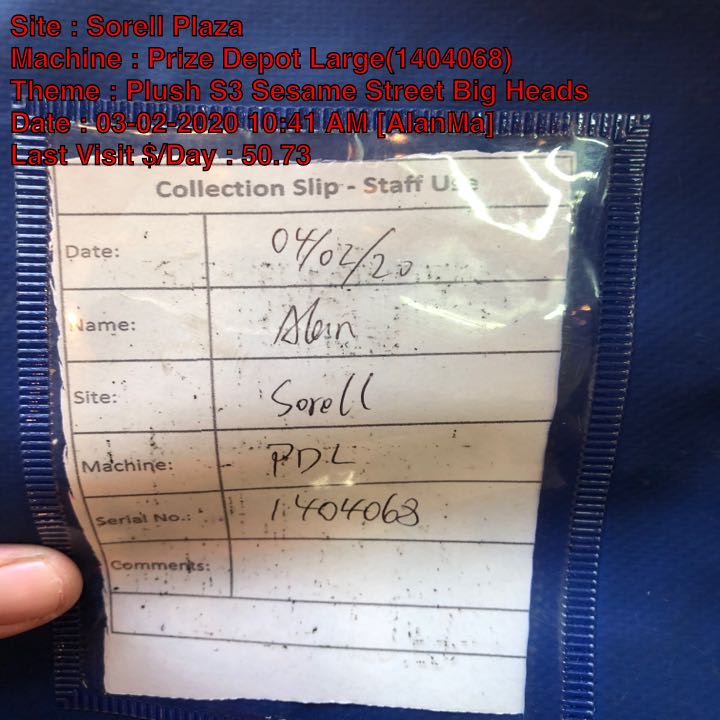 Site : Sorell Plaza
Machine : Prize Depot Large(1404068)
Theme : Plush S3 Sesame Street Big Heads
Date : 03-02-2020 10:41 AM [AlanMa]
Last Visit $/Day : 50.73
Collection Slip - Staff Use
Date: 04/02/20
Name: Alan
Site: Sorell
Machine: PDL
Serial No.: 1404068
Comments: